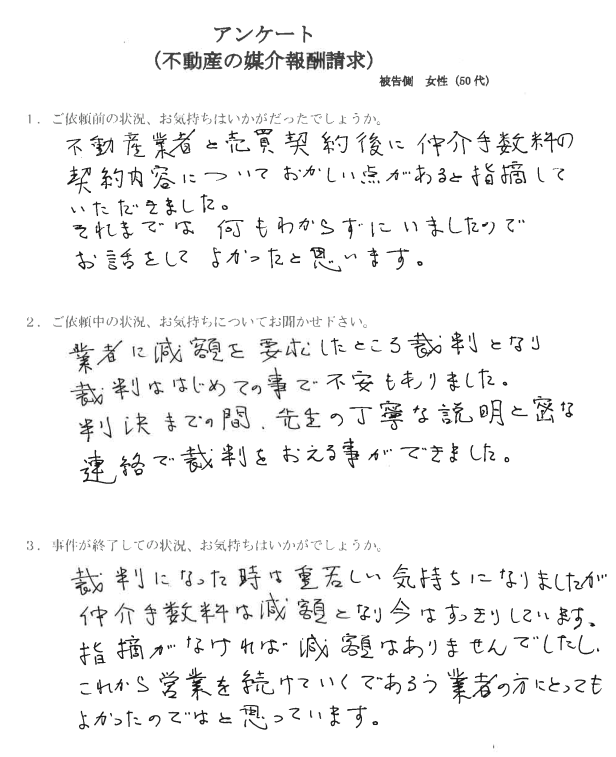 アンケート
(不動産の媒介報酬請求)
被告側　女性（50代）
1．ご依頼前の状況、お気持ちはいかがだったでしょうか。
不動産業者と売買契約後に仲介手数料の
契約内容についておかしい点があると指摘して
いただきました。
それまでは何もわからずにいましたので
お話をしてよかったと思います。
2．ご依頼中の状況、お気持ちについてお聞かせ下さい。
業者に減額を要求したところ裁判となり
裁判ははじめての事で不安もありました。
判決までの間、先生の丁寧な説明と密な
連絡で裁判をおえる事ができました。
3．事件が終了しての状況、お気持ちはいかがでしょうか。
裁判になった時は重苦しい気持ちになりましたが
仲介手数料は減額となり今はすっきりしています。
指摘がなければ減額はありませんでしたし、
これから営業を続けていくであろう業者の方にとっても
よかったのではと思っています。